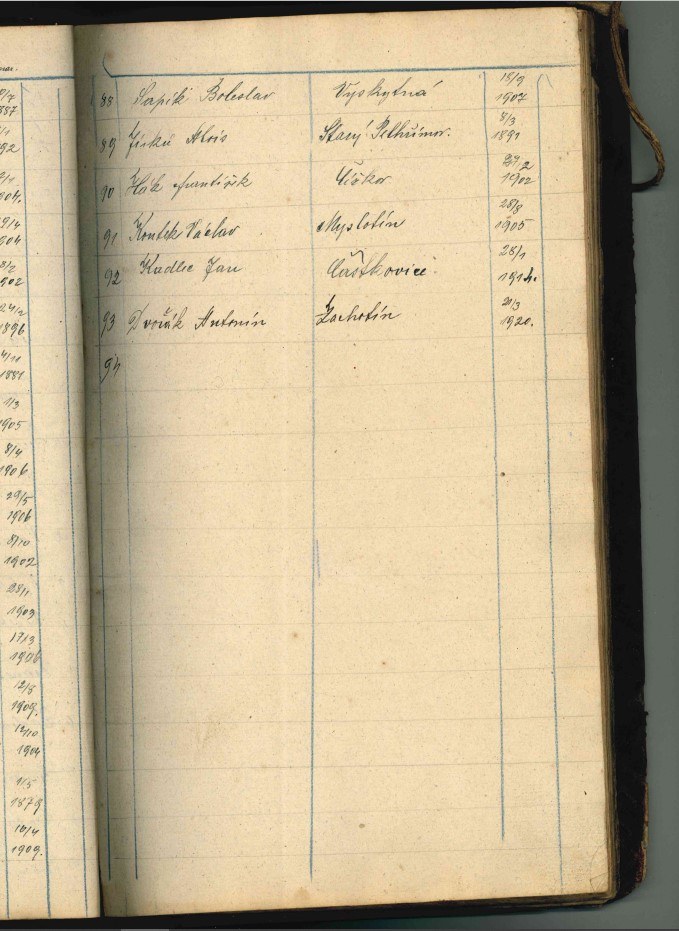 7
887
/1
92
/11
904.
19/4
904
8/2
902
24/2
1896
4/11
1881
1/3
1905
8/4
1906
29/5
1906
8/10
1902
28/1
1903
17/3
1906
12/8
1909.
12/10
1904
1/5
1879
10/4
1909.
88 Sapík Boleslav Vyskytná 18/9
1907
89 Jirků Alois Starý Pelhřimov. 8/3
1891
90 Hák František 2
1902
91 Koutek Václav Myslotín 28/8
1905
92 Kadlec Jan Částkovice. 28/1
1914.
93 Dvořák Antonín Zachotín 20/3
1920.
94